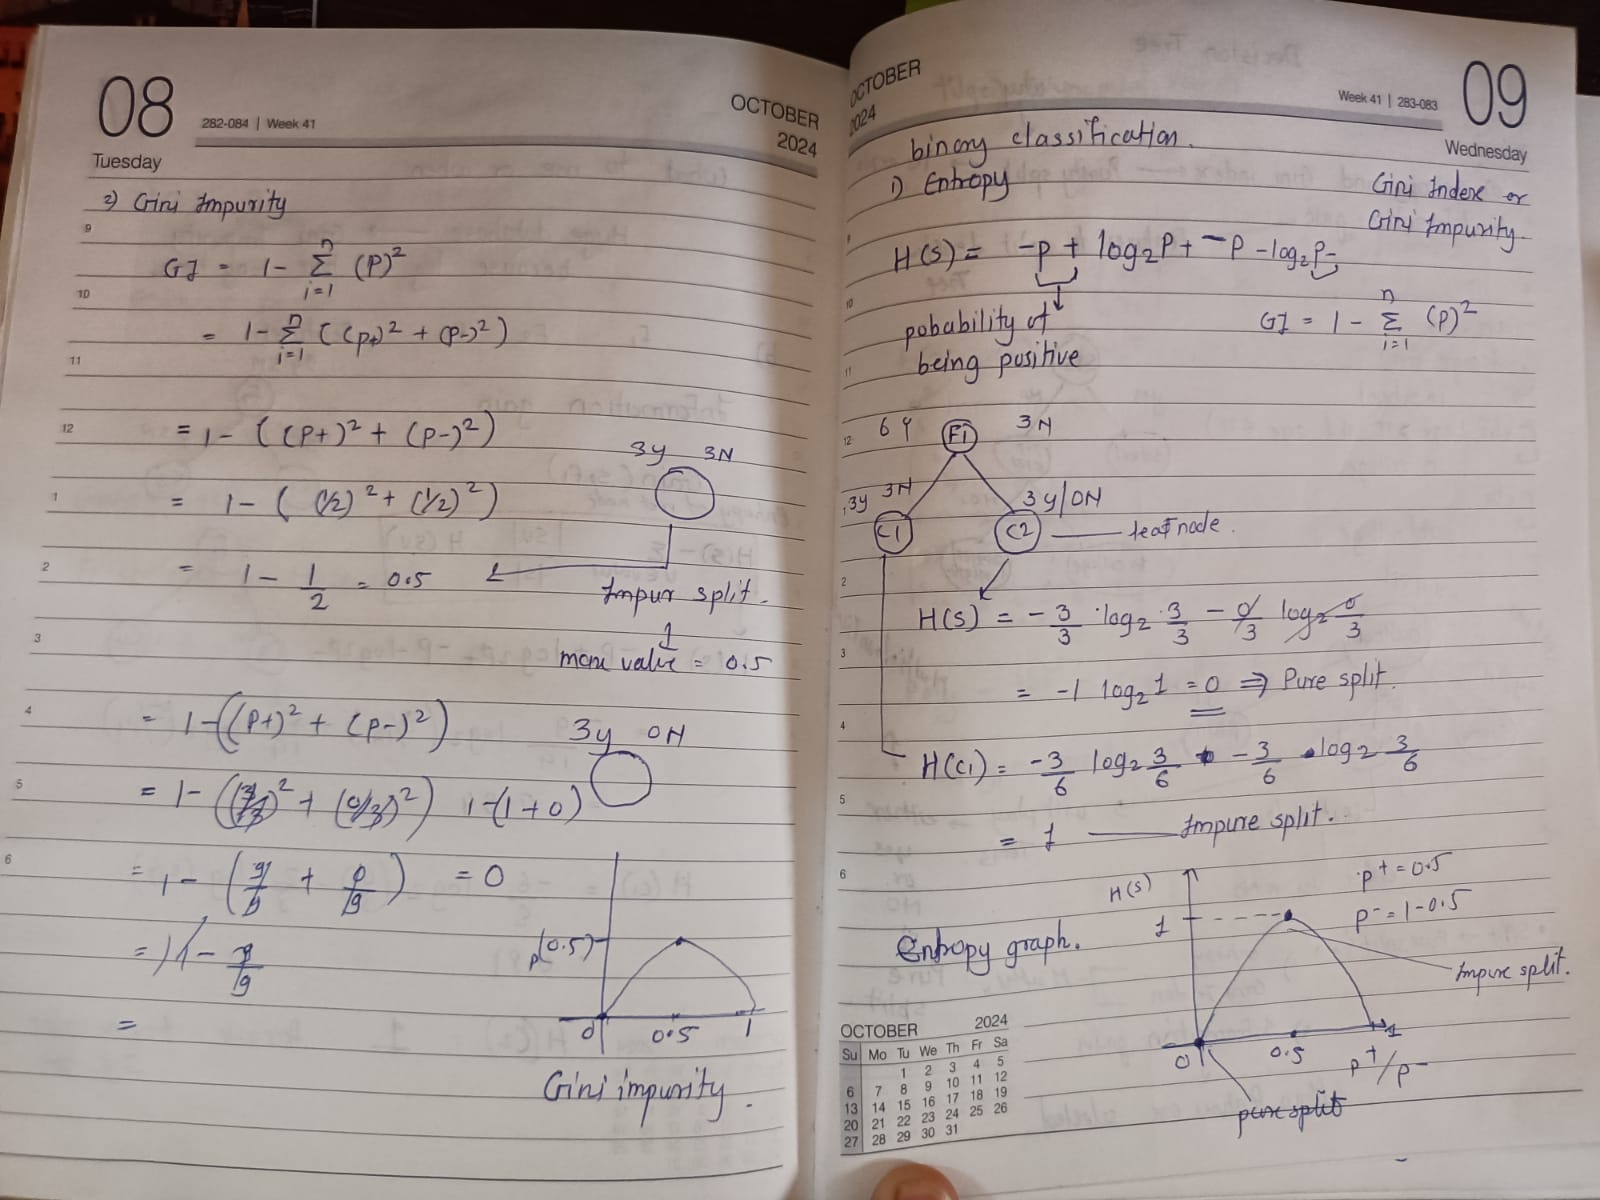 08
282-084 | Week 41
OCTOBER
2024
Tuesday
2) Gini Impurity
9
GI = 1- Σ (P)²
n
i=1
10
= 1- Σ ((P+)² + (P-)²)
n
i=1
11
12
= 1- ((P+)² + (P-)²)
3y 3N
1
= 1- ( (1/2)² + (1/2)² )
2
= 1 - 1/2 = 0.5
Impur split.
3
more value = 0.5
4
= 1-((P+)² + (P-)²)
3y 0N
5
= 1- ((3/3)² + (0/3)²) 1-(1+0)
6
= 1- (9/9 + 0/9) = 0
= 1 - 9/9
=
P(0.5)
0 0.5 1
Gini impurity.
OCTOBER
2024
Week 41 | 283-083
09
Wednesday
binary classification.
1) Entropy
Gini Index or
Gini Impurity
9
H(S) = -p + log₂P+ -P -log₂P-
10
pobability of
being positive
GI = 1 - Σ (P)²
n
i=1
11
12
6 Y F1 3N
3y 3N
3y/0N
1
C1 C2 leaf node.
2
H(S) = -3/3 · log₂ · 3/3 - 0/3 log₂ 0/3
3
= -1 log₂ 1 = 0 ⇒ Pure split.
4
H(C1) = -3/6 log₂ 3/6 -3/6 · log₂ 3/6
5
= 1 Impure split.
6
H(S)
P+ = 0.5
P- = 1-0.5
1
Entropy graph.
Impure split.
0 0.5 1
P+/P-
pure split
OCTOBER 2024
Su Mo Tu We Th Fr Sa
1 2 3 4 5
6 7 8 9 10 11 12
13 14 15 16 17 18 19
20 21 22 23 24 25 26
27 28 29 30 31